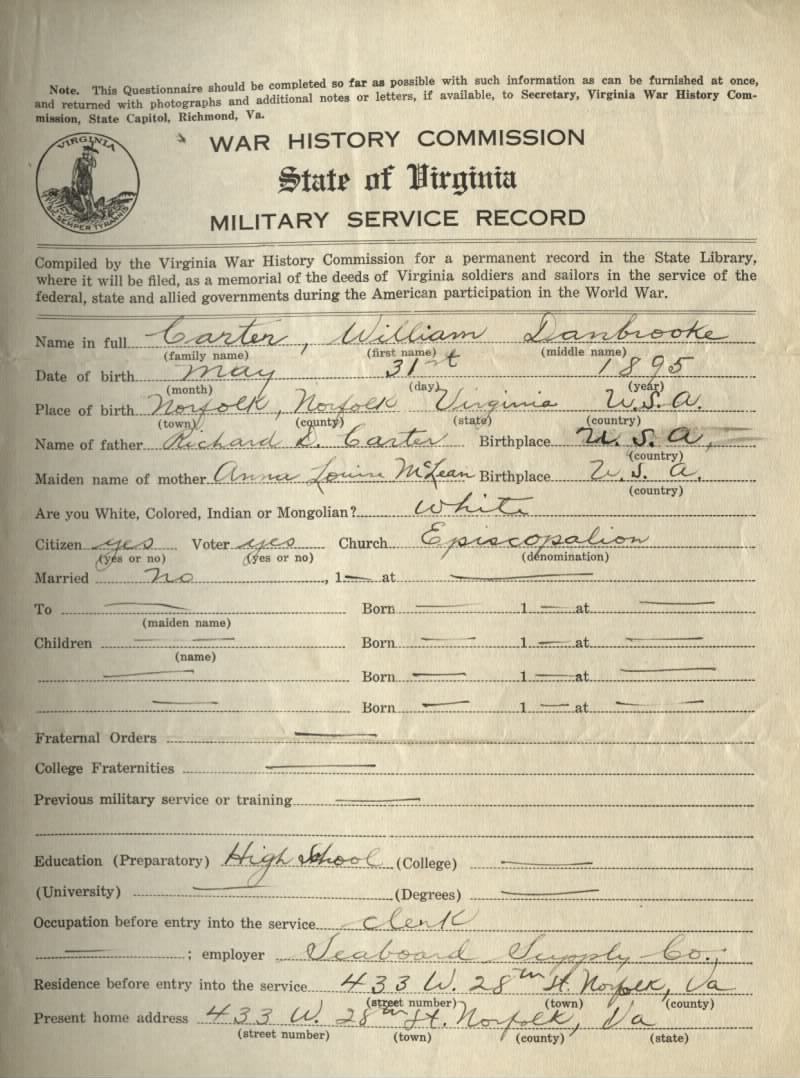 Note. This Questionnaire should be completed so far as possible with such information as can be furnished at once,
and returned with photographs and additional notes or letters, if available, to Secretary, Virginia War History Com-
mission, State Capitol, Richmond, Va.
VIRGINIA
SIC SEMPER TYRANNIS
WAR HISTORY COMMISSION
State of Virginia
MILITARY SERVICE RECORD
Compiled by the Virginia War History Commission for a permanent record in the State Library,
where it will be filed, as a memorial of the deeds of Virginia soldiers and sailors in the service of the
federal, state and allied governments during the American participation in the World War.
Name in full Carter, William Danbrooke
(family name) (first name) (middle name)
Date of birth May 31st 1895
(month) (day) (year)
Place of birth Norfolk, Norfolk Virginia U.S.A.
(town) (county) (state) (country)
Name of father Richard D. Carter Birthplace U.S.A,
(country)
Maiden name of mother Anna Louise McLean Birthplace U.S.A.
(country)
Are you White, Colored, Indian or Mongolian? White
Citizen yes Voter yes Church Episcopalion
(yes or no) (yes or no) (denomination)
Married no , 1— at —
To — Born — 1 — at —
(maiden name)
Children — Born — 1 — at —
(name)
— Born — 1 — at —
— Born — 1 — at —
Fraternal Orders —
College Fraternities —
Previous military service or training —
Education (Preparatory) High School (College) —
(University) — (Degrees) —
Occupation before entry into the service clerk
— ; employer Seaboard Supply Co.,
Residence before entry into the service 433 W. 28th St. Norfolk, Va
(street number) (town) (county)
Present home address 433 W. 28th St. Norfolk, Va
(street number) (town) (county) (state)